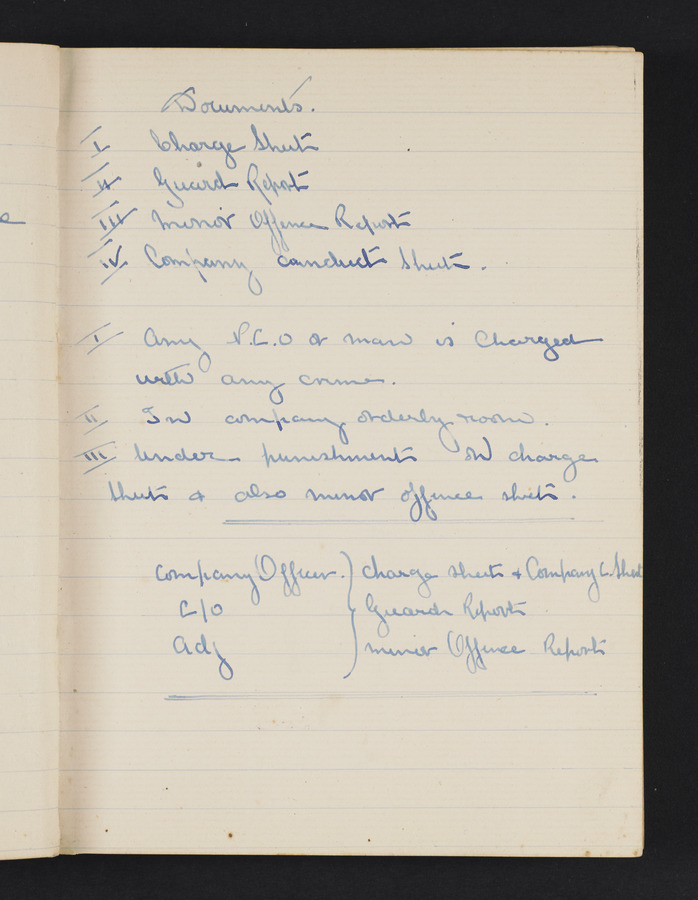 Documents.
I Charge Sheet
II Guard Report
III Minor Offence Report
IV. Company conduct Sheet.
I Any N.C.O or man is Charged
with any crime.
II In company orderly room.
III Under punishments on charge
sheets & also minor offence sheets.
Company Officer. ) charge sheets & Company C. Sheet
C/O Guards Reports
Adj minor Offence Reports
e